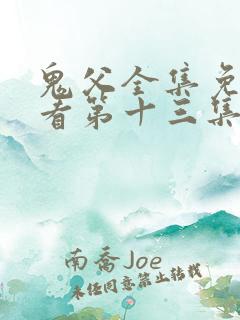 鬼父全集免
看第十三集
南乔Joe
未经同意禁止转载